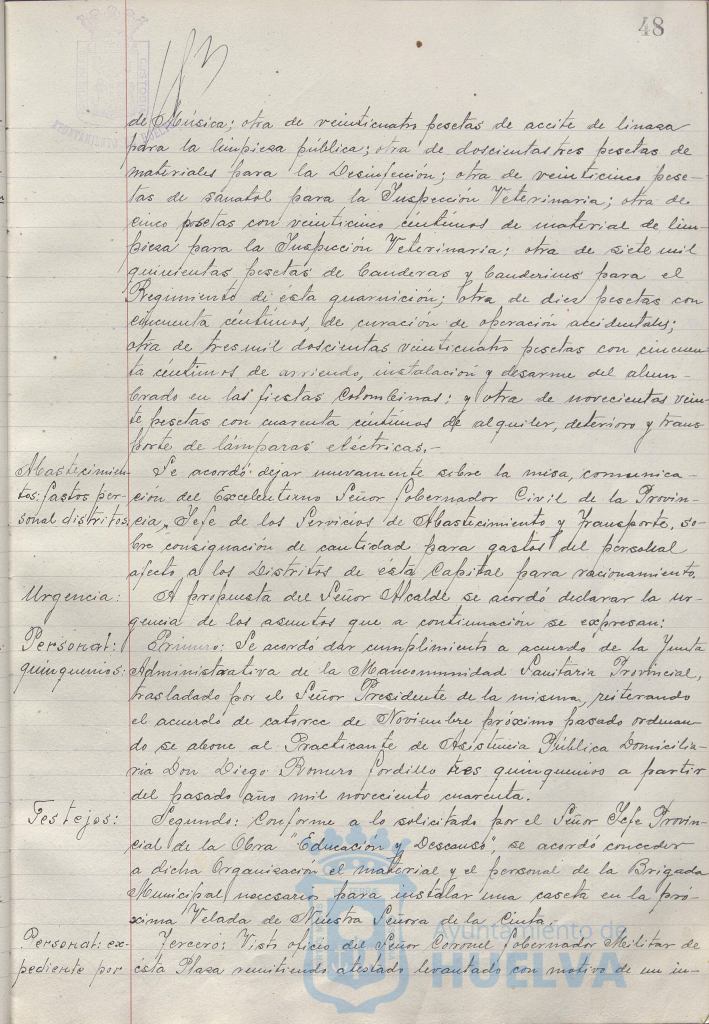 48
de Música; otra de veinticuatro pesetas de aceite de linaza
para la limpieza pública; otra de doscientas tres pesetas de
materiales para la Desinfección; otra de veinticinco pese-
tas de sanatol para la Inspección Veterinaria; otra de
cinco pesetas con veinticinco céntimos de material de lim-
pieza para la Inspección Veterinaria; otra de siete mil
quinientas pesetas de banderas y banderines para el
Regimiento de ésta guarnición; otra de diez pesetas con
cincuenta céntimos, de curación de operación accidentales;
otra de tres mil doscientas veinticuatro pesetas con cincuen-
ta céntimos de arriendo, instalación y desarme del alum-
brado en las fiestas Colombinas; y otra de novecientas vein-
te pesetas con cuarenta céntimos de alquiler, deterioro y trans
porte de lámparas eléctricas.-
Abastecimien-
tos: gastos per-
sonal distritos
Se acordó dejar nuevamente sobre la mesa, comunica-
ción del Excelentismo Señor Gobernador Civil de la Provin-
cia, Jefe de los Servicios de Abastecimiento y Transporte, so-
bre consignación de cantidad para gastos del personal
afecto a los Distritos de ésta Capital para racionamiento.
Urgencia:
A propuesta del Señor Alcalde se acordó declarar la ur-
gencia de los asuntos que a continuación se expresan:
Personal:
quinquenios:
Primero: Se acordó dar cumplimiento a acuerdo de la Junta
Administrativa de la Mancomunidad Sanitaria Provincial,
trasladado por el Señor Presidente de la misma, reiterando
el acuerdo de catorce de Noviembre próximo pasado ordenan-
do se abone al Practicante de Asistencia Pública Domicilia-
ria Don Diego Romero Gordillo tres quinquenios a partir
del pasado año mil noveciento cuarenta.
Festejos:
Segundo: Conforme a lo solicitado por el Señor Jefe Provin-
cial de la Obra "Educación y Descanso", se acordó conceder
a dicha Organización el material y el personal de la Brigada
Municipal necesario para instalar una caseta en la pró-
xima Velada de Nuestra Señora de la Cinta.
Personal: ex-
pediente por
Tercero: Visto oficio del Señor Coronel Gobernador Militar de
ésta Plaza remitiendo atestado levantado con motivo de un in-
Ayuntamiento de
HUELVA